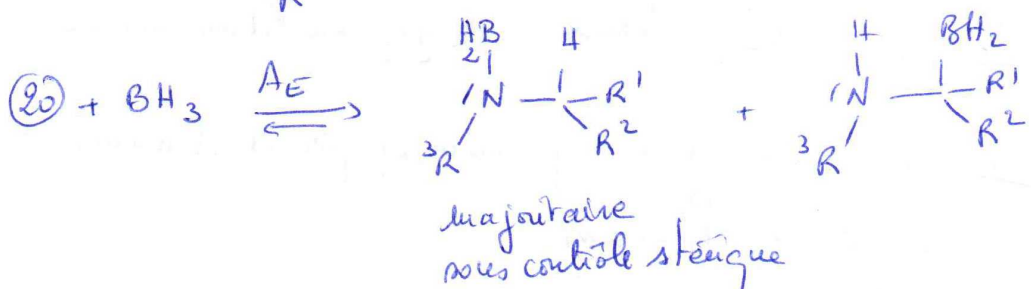 R
(20) + BH3 AE ⇌ H2B H N — C — R1 R2 3R + H BH2 N — C — R1 R2 3R
majoritaire
sous contrôle stérique